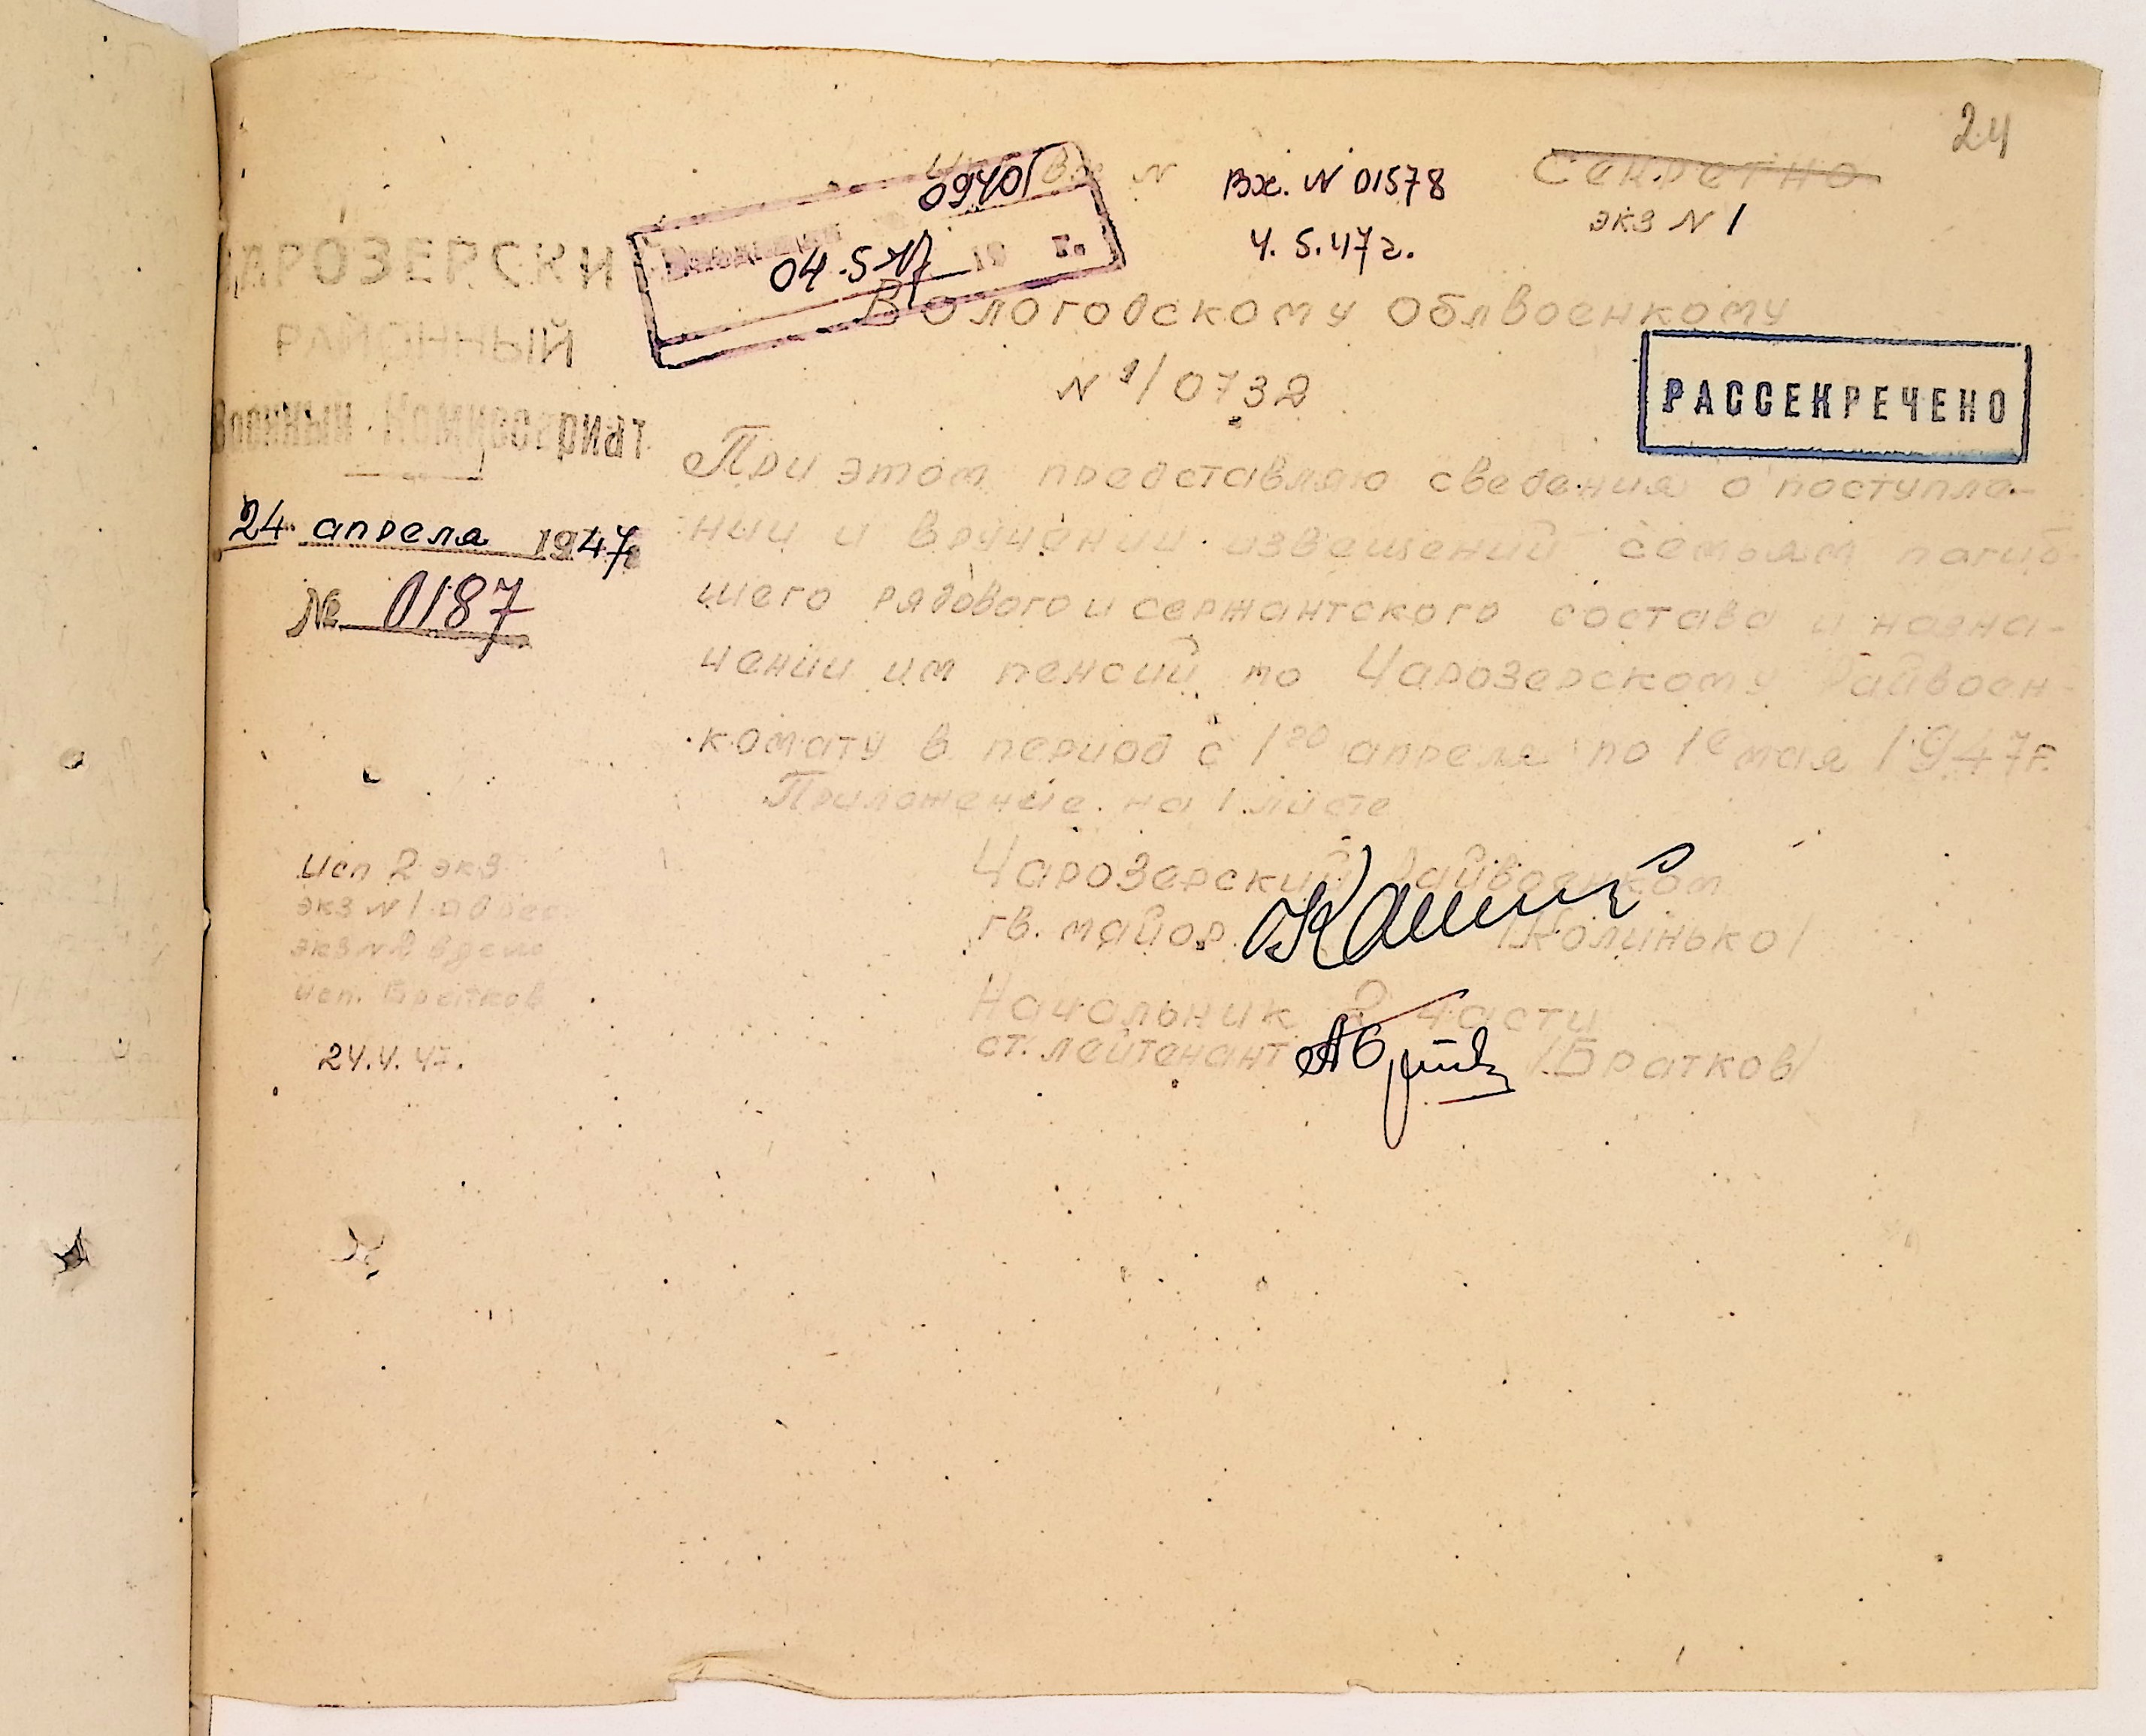 24
Секретно
экз N 1
Вх. N 01578
4.5.47г.
Вх N
0940
04.5.47 19 г.
ЧАРОЗЕРСКИ
РАЙОННЫЙ
Военный Комиссариат
24 апреля 1947
№ 0187
Вологодскому облвоенкому
N 1/0732
РАССЕКРЕЧЕНО
При этом представляю сведения о поступле-
нии и вручении извещений семьям погиб-
шего рядового и сержантского состава и назна-
чении им пенсий по Чарозерскому Райвоен-
комату в период с 1го апреля по 1е мая 1947г.
Приложение на 1 листе
Чарозерский Райвоенком
гв. майор /Колинько/
Начальник 2 части
ст. лейтенант /Братков/
исп 2 экз
экз N 1 адрес
экз N 2 в дело
исп. Братков
24.4.47.